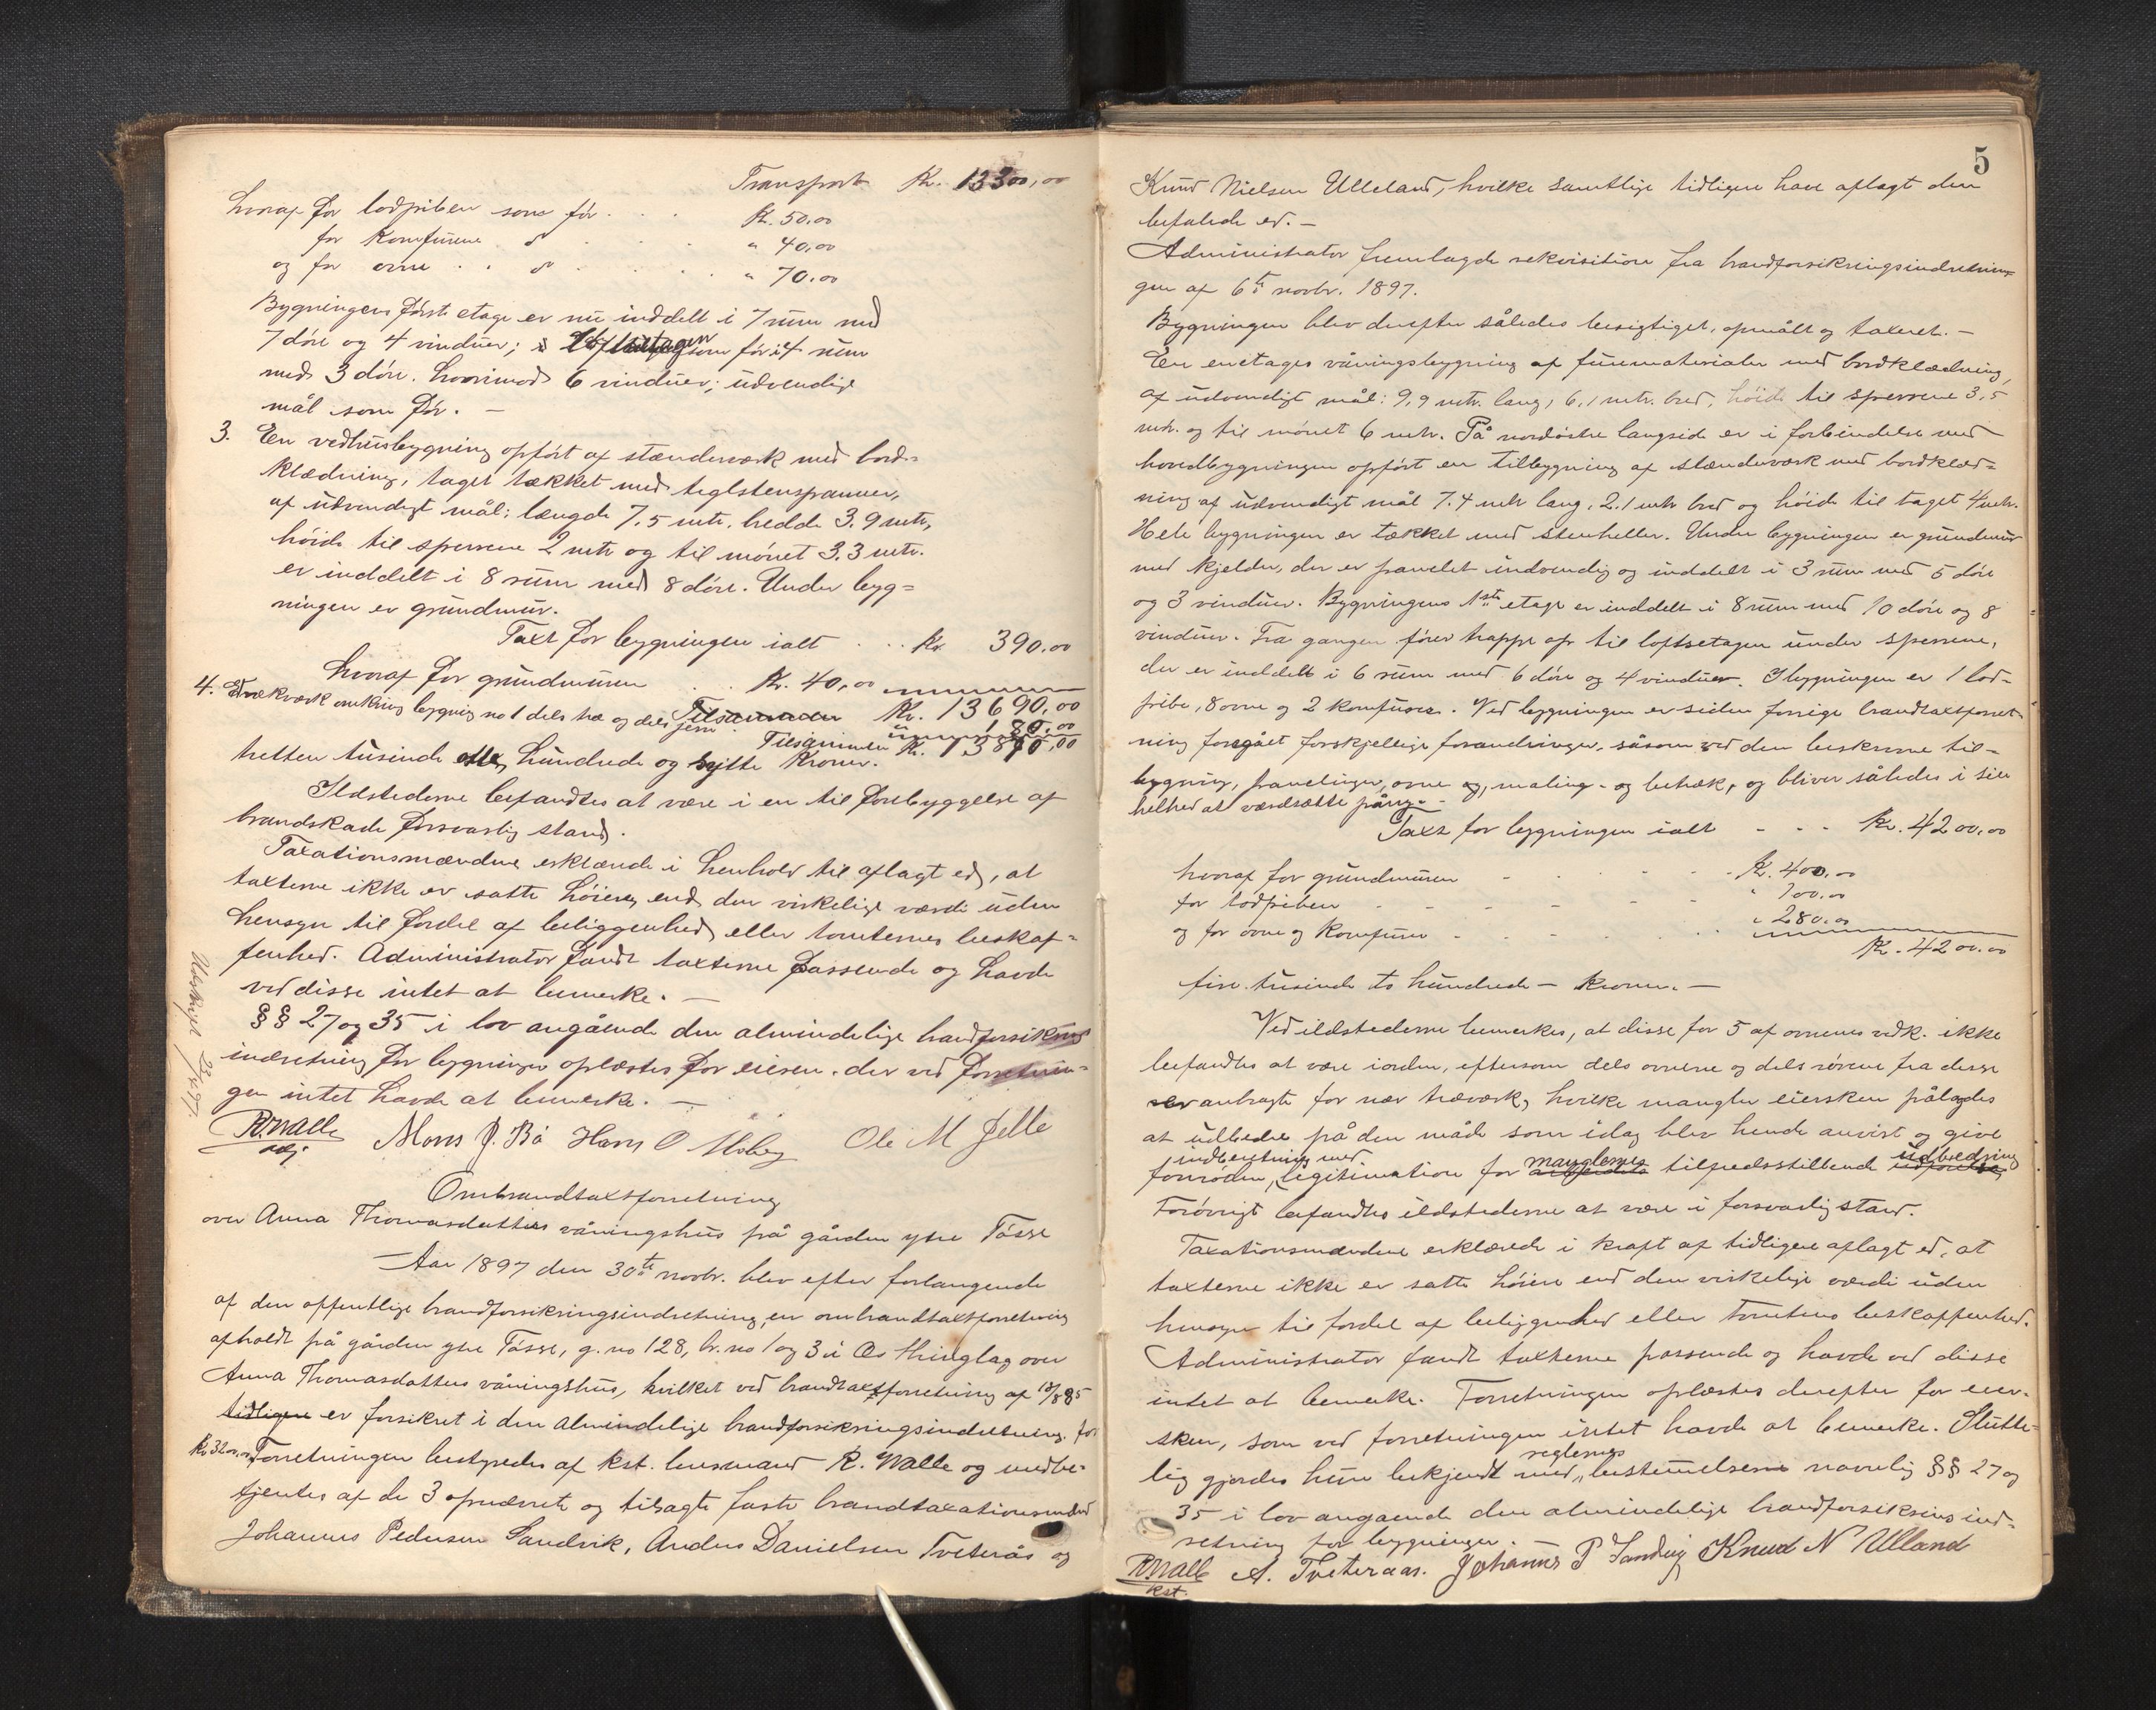 Transport Kr. 13300,00
hvoraf for lodpiben som før . . . Kr. 50.00
for komfurene d⁰ . . . " 40,00
og for ovne . . d⁰ . . . " 70.00
Bygningens første etage er nu inddelt i 7 rum med
7 døre og 4 vinduer; Loftsetagen som før i 4 rum
med 3 døre. hvorimod 6 vinduer; udvendige
mål som før. —
3. En vedhusbygning opført af stænderværk med bord-
klædning, taget tækket med teglstenspanner,
af udvendigt mål: længde 7,5 mtr, bredde 3.9 mtr,
høide til sperrene 2 mtr og til mønet 3.3 mtr.
er inddelt i 8 rum med 8 døre. Under byg=
ningen er grundmur.
Taxt for bygningen ialt . . . Kr 390.00
hvoraf for grundmuren . . Kr. 40,00
4. Et rækværk omkring bygning no 1 dels træ og dels jern
Tilsammen Kr. 13690,00
" 180.00
Tilsammen Kr. 13870,00
tretten tusinde otte hundrede og sytti kroner.
Ildstederne befandtes at være i en til forebyggelse af
brandskade forsvarlig stand.
Taxationsmændene erklærede i henhold til aflagt ed, at
taxterne ikke er satte høiere end den virkelige værdi uden
hensyn til fordel af beliggenhed eller tomternes beskaf=
fenhed. Administrator fandt taxterne passende og havde
ved disse intet at bemerke. —
§§ 27 og 35 i lov angående den almindelige brandforsikrings
indretning for bygninger oplæstes for eieren, der ved forretnin-
gen intet havde at bemerke. —
Udskrevet 23/12 97.
R. Walle Mons J. Bø Hans O Moberg Ole M Jelle
Ombrandtaxtforretning
over Anna Thomasdatters våningshus på gården ytre Tøsse
Aar 1897 den 30te novbr. blev efter forlangende
af den offentlige brandforsikringsindretning, en ombrandtaxtforretning
afholdt på gården ytre Tøsse, g. no 128, br. no 1 og 3 i Os thinglag over
Anna Thomasdatters våningshus, hvilket ved brandtaxtforretning af 10/8 85
tidligere er forsikret i den almindelige brandforsikringsindretning for
Kr 3200,00 Forretningen bestyredes af kst. lensmand R. Walle og medbe-
tjentes af de 3 opnævnte og tilsagte faste brandtaxationsmænd
Johannes Pedersen Sandvik, Anders Danielsen Tveterås og
5
Knud Nielsen Ulleland, hvilke samtlige tidligere have aflagt den
befalede ed. —
Administrator fremlagde rekvisition fra brandforsikringsindretnin-
gen af 6te novbr. 1897.
Bygningen blev derefter således besigtiget, opmålt og taxeret. —
En enetages våningsbygning af furumaterialer med bordklædning,
af udvendigt mål: 9,9 mtr. lang, 6,1 mtr. bred, høide til sperrene 3,5
mtr. og til mønet 6 mtr. På nordøstre langside er i forbindelse med
hovedbygningen opført en tilbygning af stænderværk med bordklæd=
ning af udvendigt mål 7.4 mtr lang, 2.1 mtr bred og høide til taget 4 mtr.
Hele bygningen er tækket med stenheller. Under bygningen er grundmur
med kjelder, der er panelet indvendig og inddelt i 3 rum med 5 døre
og 3 vinduer. Bygningens 1ste etage er inddelt i 8 rum med 10 døre og 8
vinduer. Fra gangen fører trappe op til loftsetagen under sperrene,
der er inddelt i 6 rum med 6 døre og 4 vinduer. I bygningen er 1 lod=
pibe, 8 ovne og 2 komfurer. Ved bygningen er siden forrige brandtaxtforret-
ning foregået forskjellige forandringer, såsom ved den beskrevne til-
bygning, panelinger, ovne og, maling og betræk, og bliver således i sin
helhed at værdsætte påny. —
Taxt for bygningen ialt - - - Kr. 4200,00
hvoraf for grundmuren - - - Kr. 400.00
for lodpiben - - - " 100.00
og for ovne og komfurer - - - " 280.00
Kr. 4200.00
fire tusinde to hundrede — kroner. —
Ved ildstederne bemerkes, at disse for 5 af ovnenes vedk. ikke
befandtes at være iorden, eftersom dels ovnene og dels rørene fra disse
er anbragte for nær træværk, hvilke mangler eiersken pålagdes
at udbedre på den måde som idag blev hende anvist og give
indberetning med manglernes udbedring
fornøden, legitimation for tilfredsstillende udførelse,
Forøvrigt befandtes ildstederne at være i forsvarlig stand.
Taxationsmændene erklærede i kraft af tidligere aflagt ed, at
taxterne ikke er satte høiere end den virkelige værdi uden
hensyn til fordel af beliggenhed eller tomtens beskaffenhed.
Administrator fandt taxterne passende og havde ved disse
intet at bemerke. Forretningen oplæstes derefter for eier-
sken, som ved forretningen intet havde at bemerke. Slutte-
reglernes
lig gjordes hun bekjendt med, bestemmelserne navnlig §§ 27 og
35 i lov angaaende den almindelige brandforsikrings ind-
retning for bygninger. —
R Walle A. Tveteraas. Johannes P Sandvig Knud N Ulland
kst.